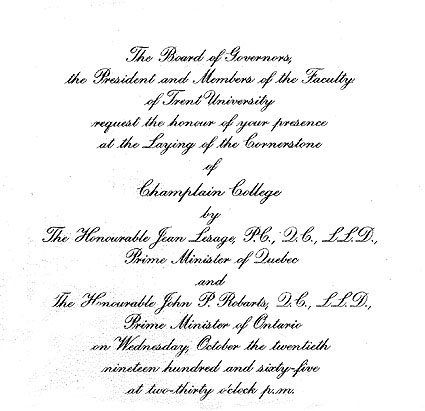 The Board of Governors,
the President and Members of the Faculty
of Trent University
request the honour of your presence
at the Laying of the Cornerstone
of
Champlain College
by
The Honourable Jean Lesage, P.C., Q.C., L.L.D.,
Prime Minister of Quebec
and
The Honourable John P. Robarts, Q.C., L.L.D.,
Prime Minister of Ontario
on Wednesday, October the twentieth
nineteen hundred and sixty-five
at two-thirty o'clock p.m.